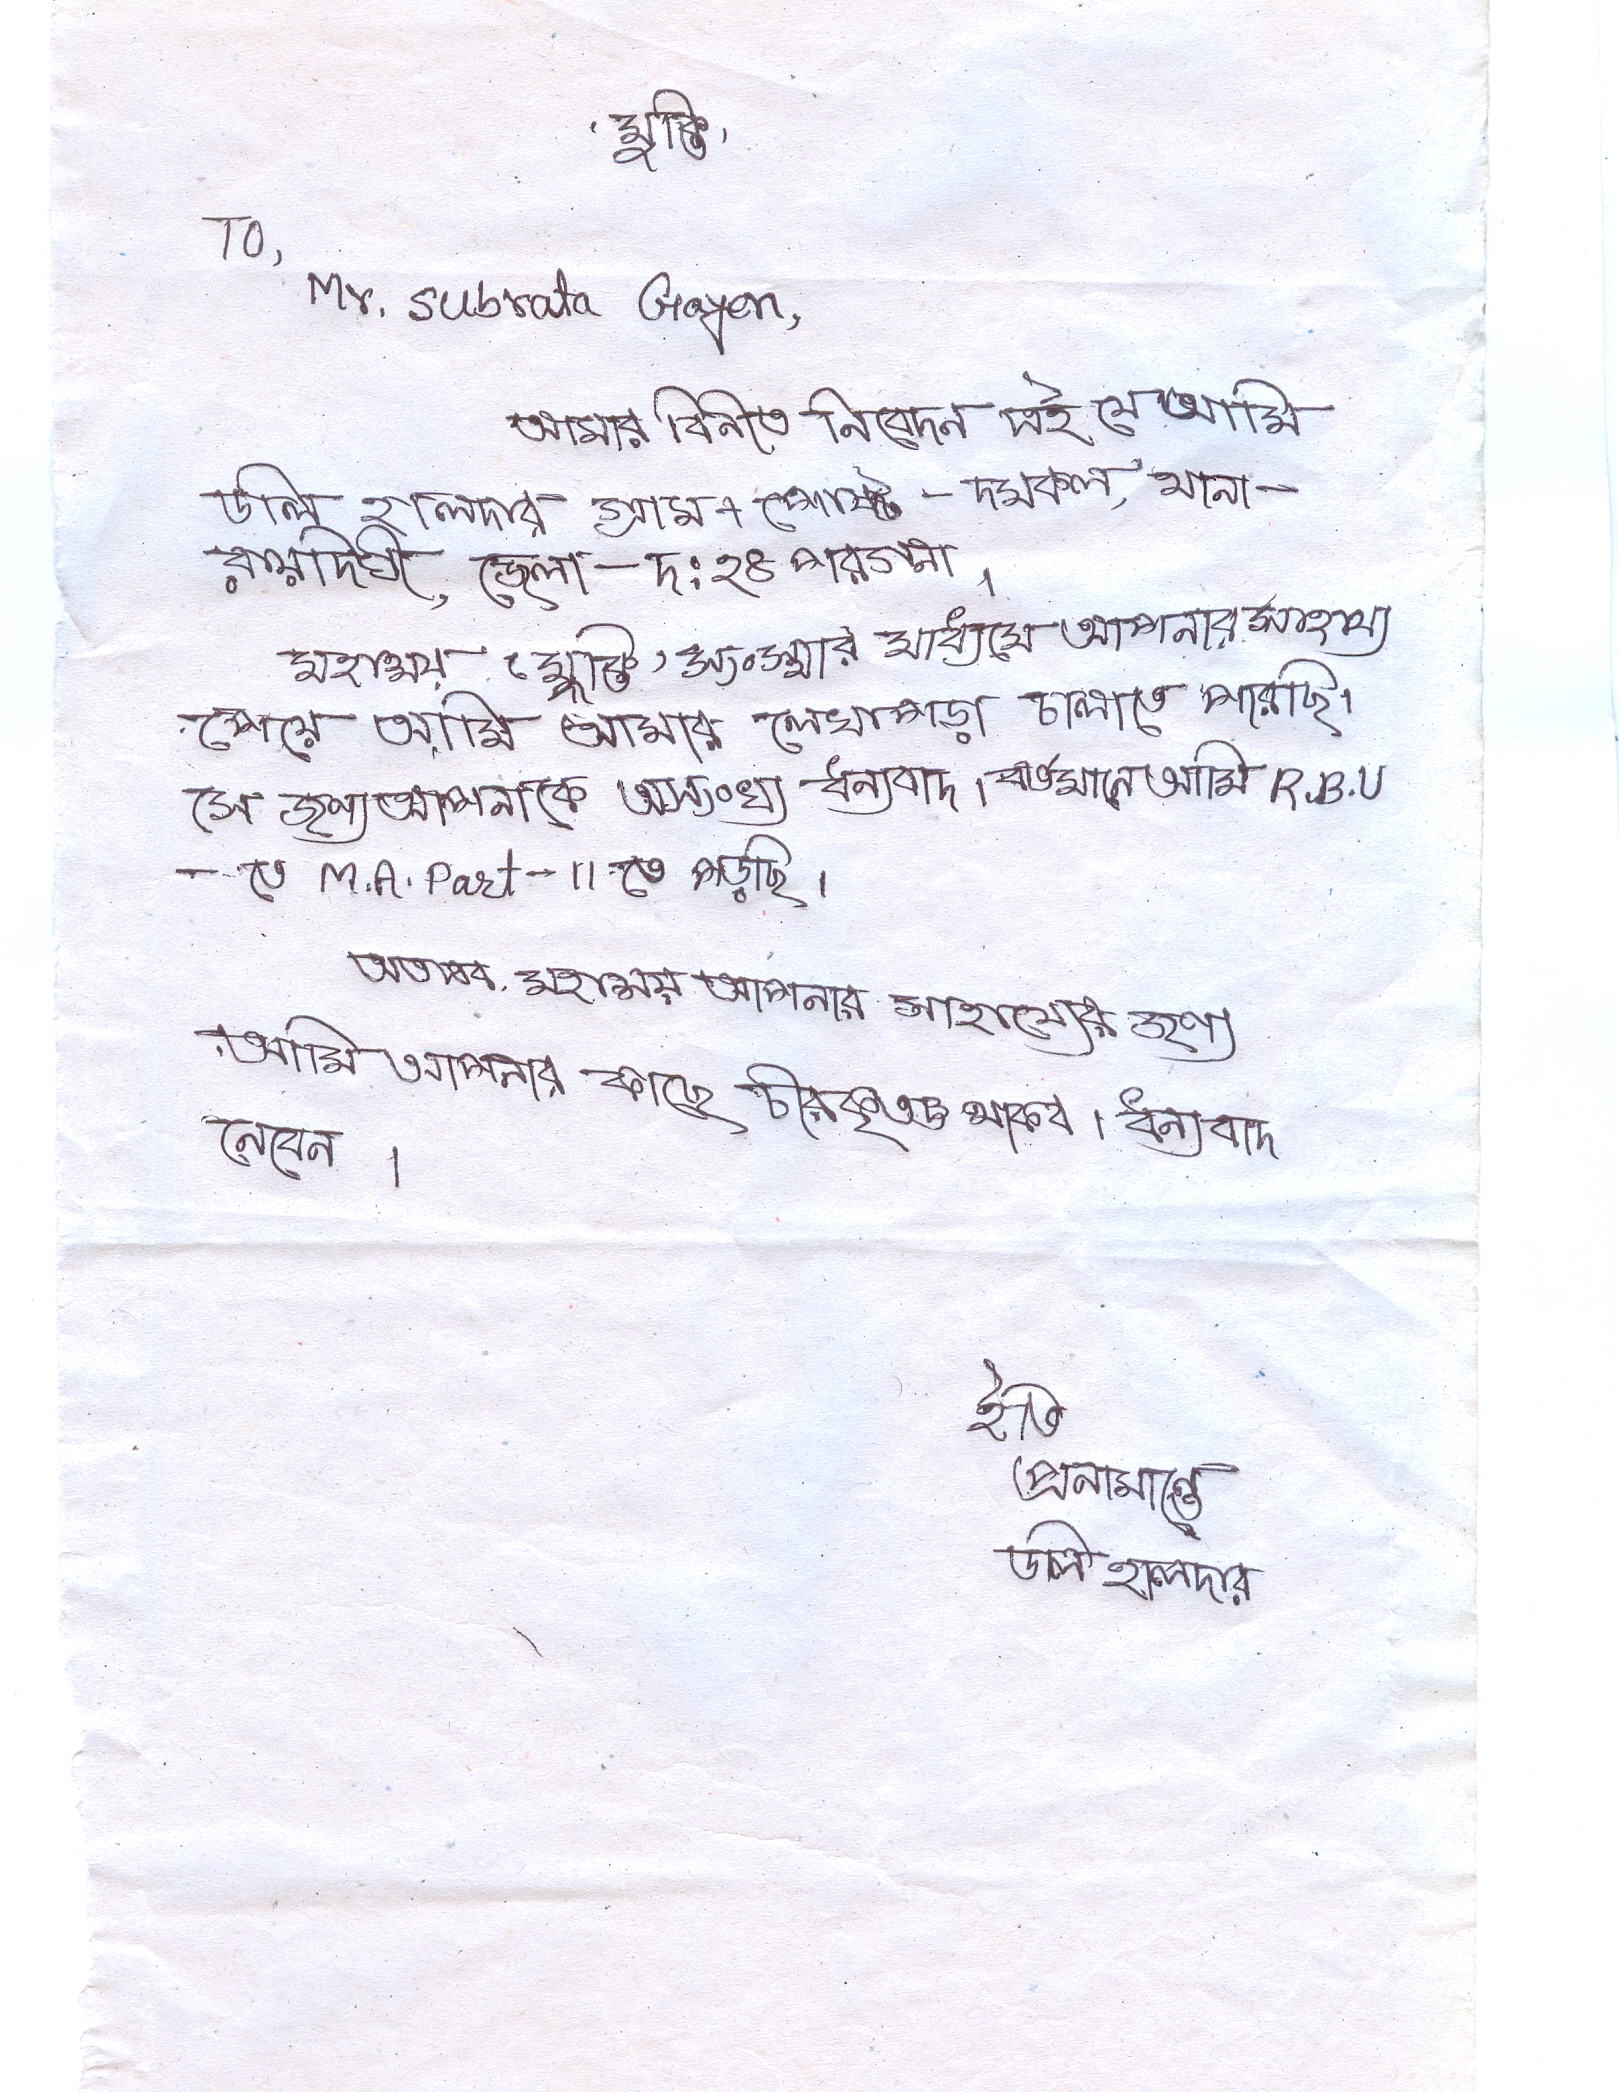 'মুক্তি'
TO,
Mr. Subrata Gayen,
আমার বিনীত নিবেদন এই যে আমি
ডলি হালদার গ্রাম + পোষ্ট - দমকল, থানা -
রায়দিঘী, জেলা - দঃ ২৪ পরগনা।
মহাশয় 'মুক্তি' সংস্থার মাধ্যমে আপনার সাহায্য
পেয়ে আমি আমার লেখাপড়া চালাতে পারছি।
সে জন্য আপনাকে অসংখ্য ধন্যবাদ। বর্তমানে আমি R.B.U
- তে M.A. Part - II তে পড়ছি।
অতএব মহাশয় আপনার সাহায্যের জন্য
আমি আপনার কাছে চীরকৃতজ্ঞ থাকব। ধন্যবাদ
নেবেন।
ইতি
প্রনামান্তে
ডলি হালদার